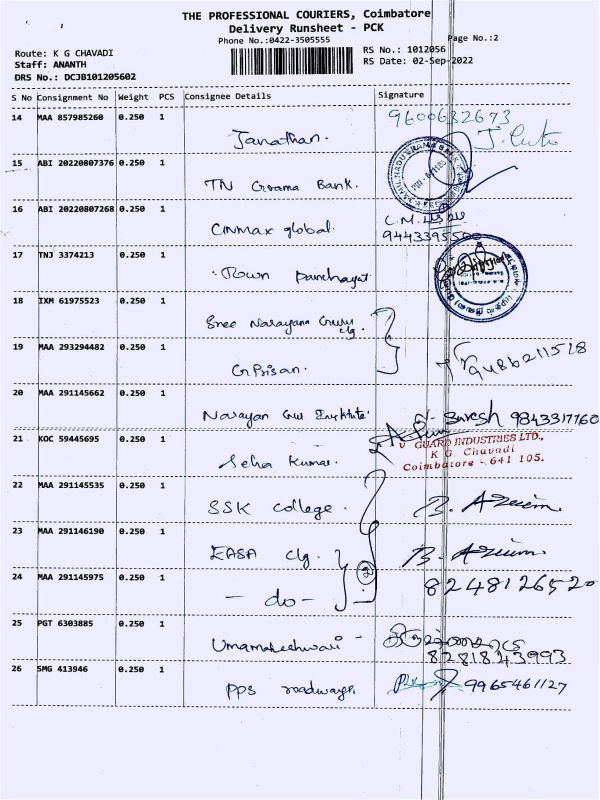 THE PROFESSIONAL COURIERS, Coimbatore
Delivery Runsheet - PCK
Phone No.:0422-3505555
Page No.:2
Route: K G CHAVADI
RS No.: 1012056
Staff: ANANTH
RS Date: 02-Sep-2022
DRS No.: DCJB101205602
S No Consignment No Weight PCS Consignee Details Signature
14 MAA 857985260 0.250 1 9600632673
Janathan.
15 ABI 20220807376 0.250 1
TN Grama Bank.
16 ABI 20220807268 0.250 1 C.M.
Cinmax global. 9443395500
17 TNJ 3374213 0.250 1
Town Panchayat
18 IXM 61975523 0.250 1
Sree Narayana Guru clg.
19 MAA 293294482 0.250 1 9486211528
20 MAA 291145662 0.250 1
Narayan Guru Institute Suresh 9843317760
21 KOC 59445695 0.250 1 V GUARD INDUSTRIES LTD.,
K G. Chavadi
Coimbatore - 641 105.
Kumar.
22 MAA 291145535 0.250 1
SSK college.
23 MAA 291146190 0.250 1
EASA clg. 2
24 MAA 291145975 0.250 1 8248126520
- do -
25 PGT 6303885 0.250 1
Umamaheshwari - 8281843993
26 SMG 413946 0.250 1
PPS roadways 9965461127